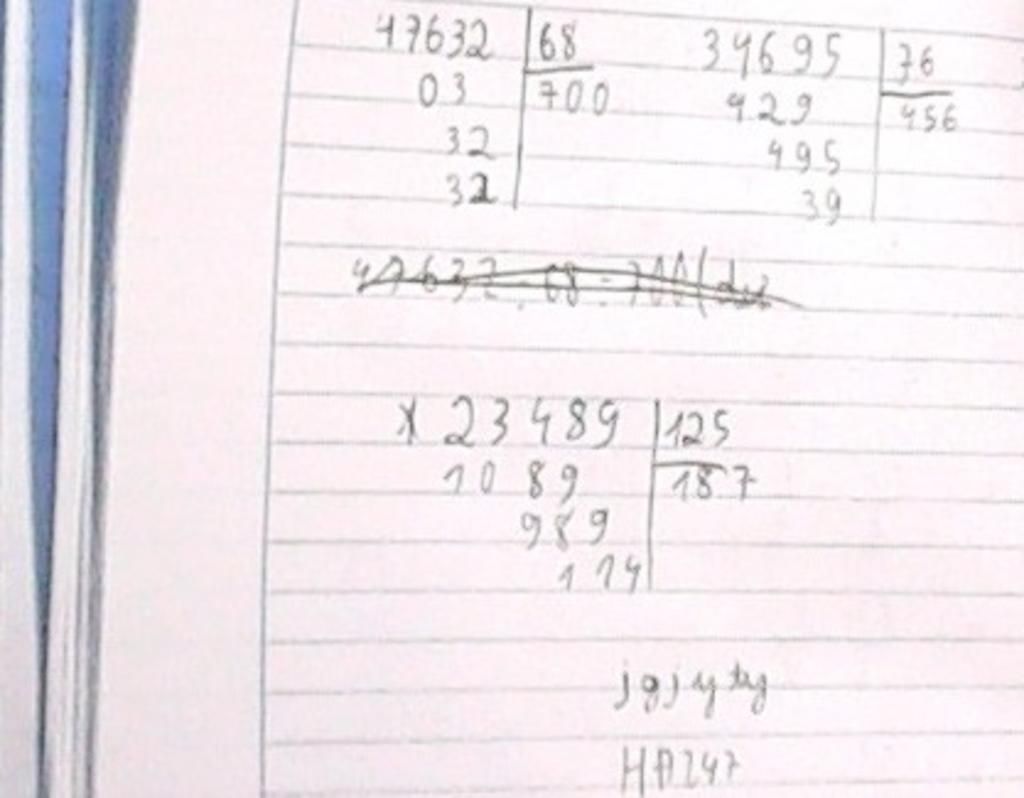 47632 68 34695 76
03 700 429 456
32 495
32 39
47632 : 68 = 700 (dư
x 23489 125
1089 187
989
114
jgjyty
HA247